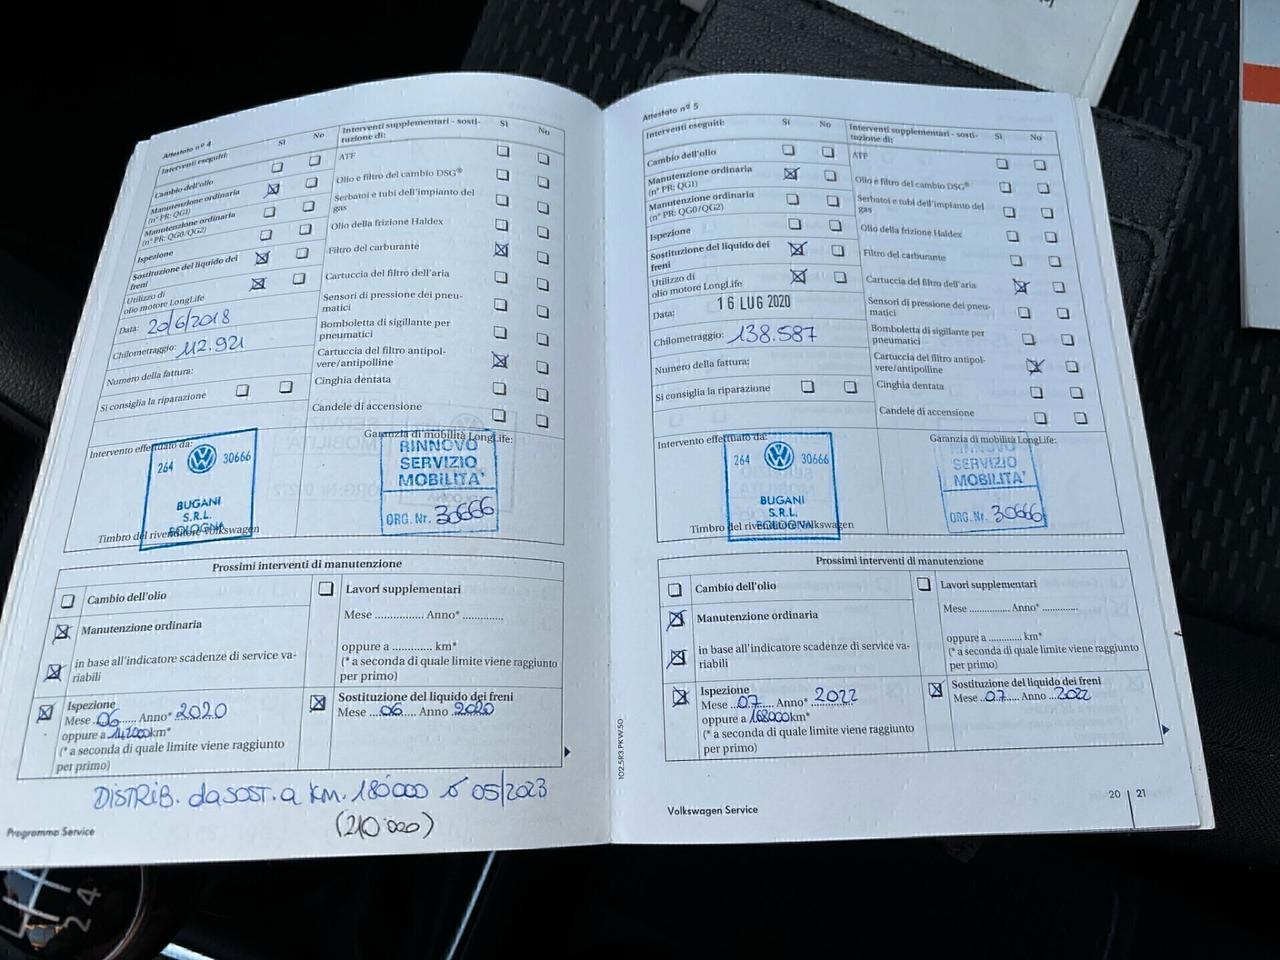 Attestato nº 4
Interventi eseguiti:
Sì
No
Cambio dell'olio
Manutenzione ordinaria
(nº PR: QG1)
Manutenzione ordinaria
(nº PR: QG0/QG2)
Ispezione
Sostituzione del liquido dei
freni
Utilizzo di
olio motore LongLife
Data: 20/6/2018
Chilometraggio: 112.921
Numero della fattura:
Si consiglia la riparazione
Interventi supplementari - sosti-
tuzione di:
Sì
No
ATF
Olio e filtro del cambio DSG®
Serbatoi e tubi dell'impianto del
gas
Olio della frizione Haldex
Filtro del carburante
Cartuccia del filtro dell'aria
Sensori di pressione dei pneu-
matici
Bomboletta di sigillante per
pneumatici
Cartuccia del filtro antipol-
vere/antipolline
Cinghia dentata
Candele di accensione
Intervento effettuato da:
264 30666
BUGANI
S.R.L.
BOLOGNA
Timbro del rivenditore Volkswagen
Garanzia di mobilità LongLife:
RINNOVO
SERVIZIO
MOBILITA'
ORG. Nr. 30666
Prossimi interventi di manutenzione
Cambio dell'olio
Manutenzione ordinaria
in base all'indicatore scadenze di service va-
riabili
Ispezione
Mese ..06...... Anno* 2020
oppure a 142000km*
(* a seconda di quale limite viene raggiunto
per primo)
Lavori supplementari
Mese ................ Anno* .............
oppure a ............ km*
(* a seconda di quale limite viene raggiunto
per primo)
Sostituzione del liquido dei freni
Mese ....06.... Anno .2020
DISTRIB. da SOST. a KM. 180000 o 05/2023
(210.000)
Programma Service
Attestato nº 5
Interventi eseguiti:
Sì
No
Cambio dell'olio
Manutenzione ordinaria
(nº PR: QG1)
Manutenzione ordinaria
(nº PR: QG0/QG2)
Ispezione
Sostituzione del liquido dei
freni
Utilizzo di
olio motore LongLife
Data: 16 LUG 2020
Chilometraggio: 138.587
Numero della fattura:
Si consiglia la riparazione
Interventi supplementari - sosti-
tuzione di:
Sì
No
ATF
Olio e filtro del cambio DSG®
Serbatoi e tubi dell'impianto del
gas
Olio della frizione Haldex
Filtro del carburante
Cartuccia del filtro dell'aria
Sensori di pressione dei pneu-
matici
Bomboletta di sigillante per
pneumatici
Cartuccia del filtro antipol-
vere/antipolline
Cinghia dentata
Candele di accensione
Intervento effettuato da:
264 30666
BUGANI
S.R.L.
BOLOGNA
Timbro del rivenditore Volkswagen
Garanzia di mobilità LongLife:
RINNOVO
SERVIZIO
MOBILITA'
ORG. Nr. 30666
Prossimi interventi di manutenzione
Cambio dell'olio
Manutenzione ordinaria
in base all'indicatore scadenze di service va-
riabili
Ispezione
Mese ..07..... Anno* 2022
oppure a 168000km*
(* a seconda di quale limite viene raggiunto
per primo)
Lavori supplementari
Mese .............. Anno* .............
oppure a ............ km*
(* a seconda di quale limite viene raggiunto
per primo)
Sostituzione del liquido dei freni
Mese ..07..... Anno ..2022
102.5R3.PKW.50
Volkswagen Service
20 21
2 4